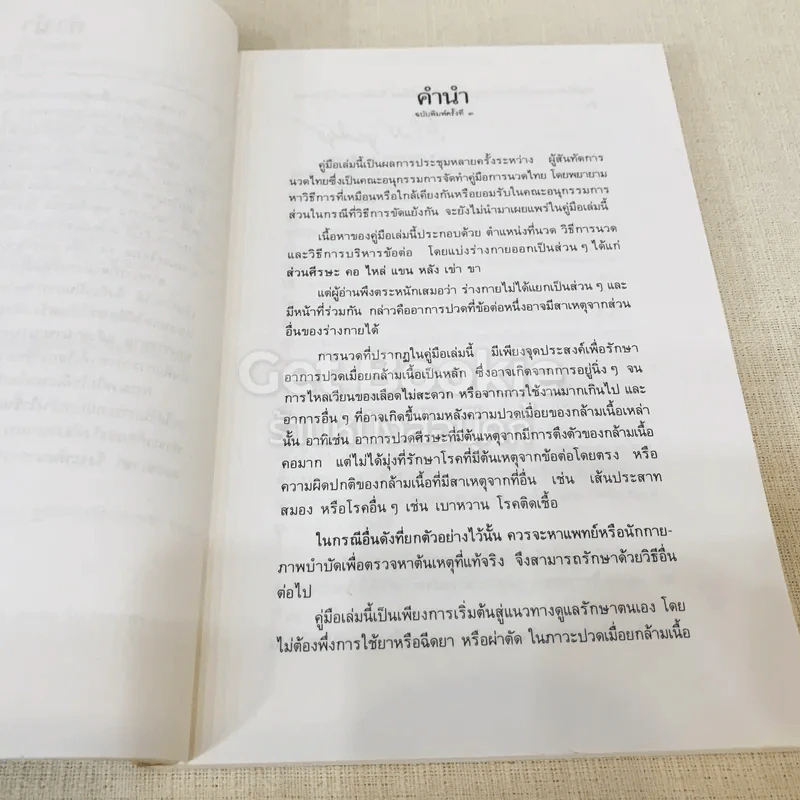 คำนำ
ฉบับพิมพ์ครั้งที่ ๓
คู่มือเล่มนี้เป็นผลการประชุมหลายครั้งระหว่าง ผู้สันทัดการ
นวดไทยซึ่งเป็นคณะอนุกรรมการจัดทำคู่มือการนวดไทย โดยพยายาม
หาวิธีการที่เหมือนหรือใกล้เคียงกันหรือยอมรับในคณะอนุกรรมการ
ส่วนในกรณีที่วิธีการขัดแย้งกัน จะยังไม่นำมาเผยแพร่ในคู่มือเล่มนี้
เนื้อหาของคู่มือเล่มนี้ประกอบด้วย ตำแหน่งที่นวด วิธีการนวด
และวิธีการบริหารข้อต่อ โดยแบ่งร่างกายออกเป็นส่วน ๆ ได้แก่
ส่วนศีรษะ คอ ไหล่ แขน หลัง เข่า ขา
แต่ผู้อ่านพึงตระหนักเสมอว่า ร่างกายไม่ได้แยกเป็นส่วน ๆ และ
มีหน้าที่ร่วมกัน กล่าวคืออาการปวดที่ข้อต่อหนึ่งอาจมีสาเหตุจากส่วน
อื่นของร่างกายได้
การนวดที่ปรากฏในคู่มือเล่มนี้ มีเพียงจุดประสงค์เพื่อรักษา
อาการปวดเมื่อยกล้ามเนื้อเป็นหลัก ซึ่งอาจเกิดจากการอยู่นิ่ง ๆ จน
การไหลเวียนของเลือดไม่สะดวก หรือจากการใช้งานมากเกินไป และ
อาการอื่น ๆ ที่อาจเกิดขึ้นตามหลังความปวดเมื่อยของกล้ามเนื้อเหล่า
นั้น อาทิเช่น อาการปวดศีรษะที่มีต้นเหตุจากมีการตึงตัวของกล้ามเนื้อ
คอมาก แต่ไม่ได้มุ่งที่รักษาโรคที่มีต้นเหตุจากข้อต่อโดยตรง หรือ
ความผิดปกติของกล้ามเนื้อที่มีสาเหตุจากที่อื่น เช่น เส้นประสาท
สมอง หรือโรคอื่น ๆ เช่น เบาหวาน โรคติดเชื้อ
ในกรณีอื่นดังที่ยกตัวอย่างไว้นั้น ควรจะหาแพทย์หรือนักกาย-
ภาพบำบัดเพื่อตรวจหาต้นเหตุที่แท้จริง จึงสามารถรักษาด้วยวิธีอื่น
ต่อไป
คู่มือเล่มนี้เป็นเพียงการเริ่มต้นสู่แนวทางดูแลรักษาตนเอง โดย
ไม่ต้องพึ่งการใช้ยาหรือฉีดยา หรือผ่าตัด ในภาวะปวดเมื่อยกล้ามเนื้อ